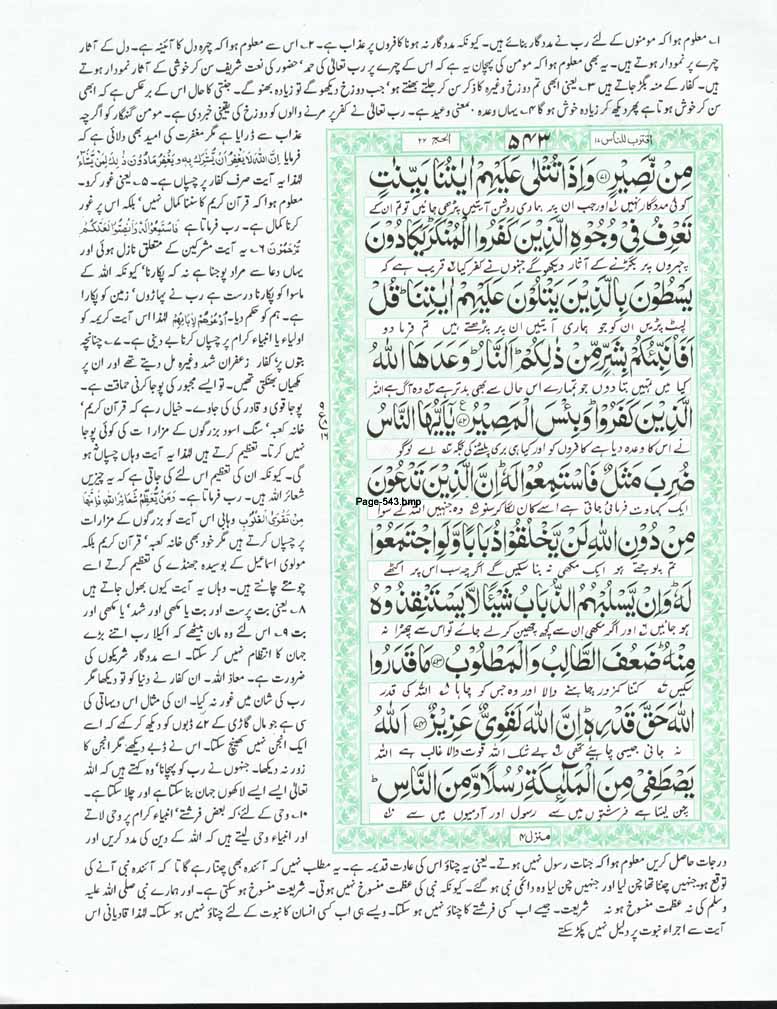 ۱۔ معلوم ہوا کہ مومنوں کے لئے رب نے مددگار بنائے ہیں۔ کیونکہ مددگار نہ ہونا کافروں پر عذاب ہے۔ ۲۔ اس سے معلوم ہوا کہ چہرہ دل کا آئینہ ہے۔ دل کے آثار
چہرے پر نمودار ہوتے ہیں۔ یہ بھی معلوم ہوا کہ مومن کی پہچان یہ ہے کہ اس کے چہرے پر رب تعالٰی کی حمد' حضور کی نعت شریف سن کر خوشی کے آثار نمودار ہوتے
ہیں۔ کفار کے منہ بگڑ جاتے ہیں ۳۔ یعنی ابھی تم دوزخ وغیرہ کا ذکر سن کر جلتے بھنتے ہو' جب دوزخ دیکھو گے تو زیادہ بھنو گے۔ جنتی کا حال اس کے برعکس ہے کہ ابھی
سن کر خوش ہوتا ہے پھر دیکھ کر زیادہ خوش ہو گا ۴۔ یہاں وعدہ بمعنی وعید ہے۔ رب تعالٰی نے کفر پر مرنے والوں کو دوزخ کی یقینی خبر دی ہے۔ مومن گنہگار کو اگرچہ
عذاب سے ڈرایا ہے مگر مغفرت کی امید بھی دلائی ہے کہ
فرمایا اِنَّ اللّٰہَ لَا یَغْفِرُ اَنْ یُّشْرَکَ بِہٖ وَیَغْفِرُ مَا دُوْنَ ذٰلِکَ لِمَنْ یَّشَآءُ
لہٰذا یہ آیت صرف کفار پر چسپاں ہے۔ ۵۔ یعنی غور کرو۔
معلوم ہوا کہ قرآن کریم کا سننا کمال نہیں' بلکہ اس پر غور
کرنا کمال ہے۔ رب فرماتا ہے فَاسْتَمِعُوْا لَہٗ وَاَنْصِتُوْا لَعَلَّکُمْ
تُرْحَمُوْنَ ۶۔ یہ آیت مشرکین کے متعلق نازل ہوئی اور
یہاں دعا سے مراد پوجنا ہے نہ کہ پکارنا' کیونکہ اللہ کے
ماسوا کو پکارنا درست ہے رب نے پہاڑوں' زمین کو پکارا
ہے۔ ہم کو حکم دیا۔ اُدْعُوْھُمْ لِاٰبَآئِھِمْ لہٰذا اس آیت کریمہ کو
اولیاء یا انبیاء کرام پر چسپاں کرنا بے دینی ہے۔ ۷۔ چنانچہ
بتوں پر' کفار زعفران شہد وغیرہ مل دیتے تھے اور ان پر
مکھیاں بھنکتی تھیں۔ تو ایسے مجبور کی پوجا کرنی حماقت ہے۔
پوجا قوی و قادر کی کی جاوے۔ خیال رہے کہ قرآن کریم'
خانہ کعبہ' سنگ اسود بزرگوں کے مزارات کی کوئی پوجا
نہیں کرتا۔ تعظیم کرتے ہیں لہٰذا یہ آیت وہاں چسپاں نہ ہو
گی۔ کیونکہ ان کی تعظیم اس لئے کی جاتی ہے کہ یہ چیزیں
شعائر اللہ ہیں۔ رب فرماتا ہے۔ وَمَنْ یُّعَظِّمْ شَعَآئِرَ اللّٰہِ فَاِنَّھَا
مِنْ تَقْوَی الْقُلُوْبِ وہابی اس آیت کو بزرگوں کے مزارات
پر چسپاں کرتے ہیں مگر خود بھی خانہ کعبہ' قرآن کریم بلکہ
مولوی اسماعیل کے بوسیدہ جھنڈے کی تعظیم کرتے اسے
چومتے چاٹتے ہیں۔ وہاں یہ آیت کیوں بھول جاتے ہیں
۸۔ یعنی بت پرست اور بت یا مکھی اور شہد' یا مکھی اور
بت ۹۔ اس لئے وہ مان بیٹھے کہ اکیلا رب اتنے بڑے
جہان کا انتظام نہیں کر سکتا۔ اسے مددگار شریکوں کی
ضرورت ہے۔ معاذ اللہ۔ ان کفار نے دنیا کو تو دیکھا مگر
رب کی شان میں غور نہ کیا۔ ان کی مثال اس دیہاتی کی
سی ہے جو مال گاڑی کے ۷۲ ڈبوں کو دیکھ کر کہے کہ اسے
ایک انجن نہیں کھینچ سکتا۔ اس نے ڈبے دیکھے مگر انجن کا
زور نہ دیکھا۔ جنہوں نے رب کو پہچانا' وہ کہتے ہیں کہ اللہ
تعالٰی ایسے ایسے لاکھوں جہان بنا سکتا ہے اور چلا سکتا ہے۔
۱۰۔ وحی کے لئے کہ بعض فرشتے' انبیاء کرام پر وحی لاتے
اور انبیاء وحی لیتے ہیں کہ اللہ کے دین کی مدد کریں اور
اقترب للناس ۱۷
۵۴۳
الحج ۲۲
مِنْ نَّصِیْرٍ ﴿۷۱﴾ وَاِذَا تُتْلٰی عَلَیْہِمْ اٰیٰتُنَا بَیِّنٰتٍ
کوئی مددگار نہیں لہ اور جب ان پر ہماری روشن آیتیں پڑھی جائیں تو تم ان کے
تَعْرِفُ فِیْ وُجُوْہِ الَّذِیْنَ کَفَرُوا الْمُنْکَرَ یَکَادُوْنَ
چہروں پر بگڑنے کے آثار دیکھو گے جنہوں نے کفر کیا ۲ قریب ہے کہ
یَسْطُوْنَ بِالَّذِیْنَ یَتْلُوْنَ عَلَیْہِمْ اٰیٰتِنَا قُلْ
لپٹ پڑیں ان کو جو ہماری آیتیں ان پر پڑھتے ہیں تم فرما دو
اَفَاُنَبِّئُکُمْ بِشَرٍّ مِّنْ ذٰلِکُمْ اَلنَّارُ وَعَدَھَا اللّٰہُ
کیا میں تمہیں بتا دوں جو تمہارے اس حال سے بھی بدتر ہے ۳ وہ آگ ہے اللہ
الَّذِیْنَ کَفَرُوْا وَبِئْسَ الْمَصِیْرُ ﴿۷۲﴾ یٰۤاَیُّھَا النَّاسُ
نے اس کا وعدہ دیا ہے کافروں کو اور کیا ہی بری پلٹنے کی جگہ ۴ اے لوگو
ضُرِبَ مَثَلٌ فَاسْتَمِعُوْا لَہٗ اِنَّ الَّذِیْنَ تَدْعُوْنَ
ایک کہاوت فرمائی جاتی ہے اسے کان لگا کر سنو ۵ وہ جنہیں اللہ کے سوا
مِنْ دُوْنِ اللّٰہِ لَنْ یَّخْلُقُوْا ذُبَابًا وَّلَوِ اجْتَمَعُوْا
تم پوجتے ہو ایک مکھی نہ بنا سکیں گے اگرچہ سب اس پر اکٹھے
لَہٗ وَاِنْ یَّسْلُبْہُمُ الذُّبَابُ شَیْئًا لَّا یَسْتَنْقِذُوْہُ
ہو جائیں ۶ اور اگر مکھی ان سے کچھ چھین کر لے جائے تو اس سے چھڑا نہ
مِنْہُ ضَعُفَ الطَّالِبُ وَالْمَطْلُوْبُ ﴿۷۳﴾ مَا قَدَرُوا
سکیں ۷ کتنا کمزور چاہنے والا اور وہ جس کو چاہا ۸ اللہ کی قدر
اللّٰہَ حَقَّ قَدْرِہٖ اِنَّ اللّٰہَ لَقَوِیٌّ عَزِیْزٌ ﴿۷۴﴾ اَللّٰہُ
نہ جانی جیسی چاہیے تھی ۹ بے شک اللہ قوت والا غالب ہے اللہ
یَصْطَفِیْ مِنَ الْمَلٰٓئِکَۃِ رُسُلًا وَّمِنَ النَّاسِ
چن لیتا ہے فرشتوں میں سے رسول اور آدمیوں میں سے ۱۰
منزل ۴
۹
ع
۸
۱۶
Page-543.bmp
درجات حاصل کریں معلوم ہوا کہ جنات رسول نہیں ہوتے۔ یعنی یہ چناؤ اس کی عادت قدیمہ ہے۔ یہ مطلب نہیں کہ آئندہ بھی چنتا رہے گا تا کہ آئندہ نبی آنے کی
توقع ہو، جنہیں چننا تھا چن لیا اور جنہیں چن لیا وہ دائمی نبی ہو گئے۔ کیونکہ نبی کی عظمت منسوخ نہیں ہوتی۔ شریعت منسوخ ہو سکتی ہے۔ اور ہمارے نبی صلی اللہ علیہ
وسلم کی نہ عظمت منسوخ ہو نہ شریعت۔ جیسے اب کسی فرشتے کا چناؤ نہیں ہو سکتا۔ ویسے ہی اب کسی انسان کا نبوت کے لئے چناؤ نہیں ہو سکتا۔ لہٰذا قادیانی اس
آیت سے اجراء نبوت پر دلیل نہیں پکڑ سکتے